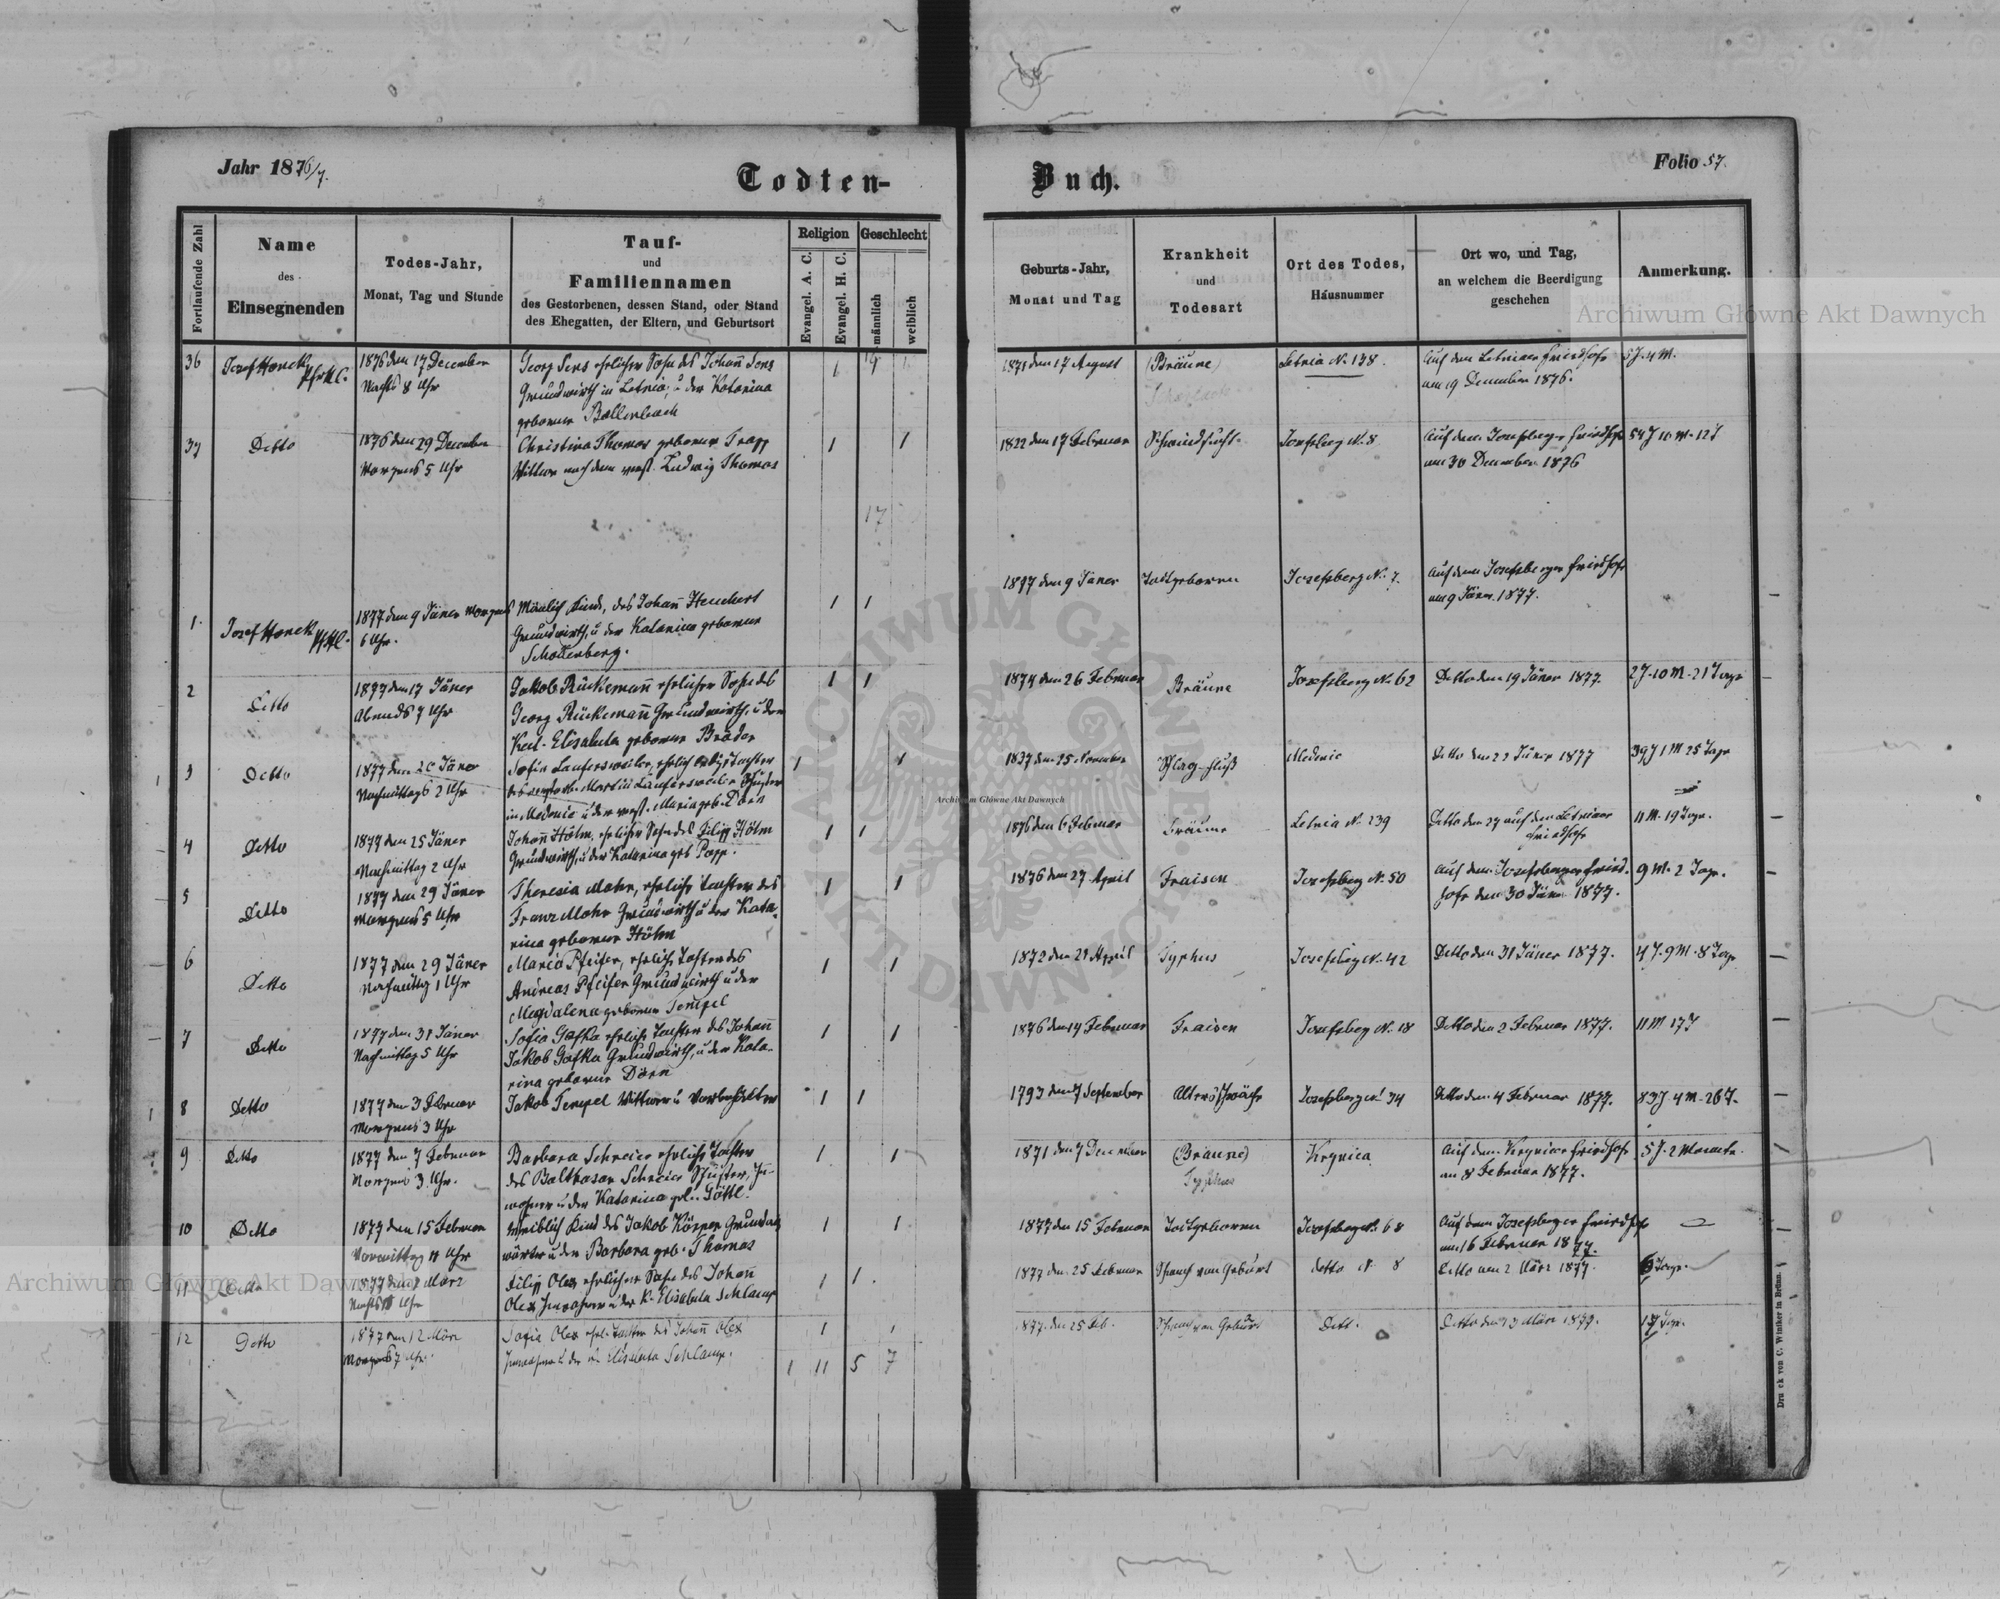 Jahr 1876/7.
Todten-
Buch.
Folio 57.
Fortlaufende Zahl
Name
des
Einsegnenden
Todes-Jahr,
Monat, Tag und Stunde
Tauf-
und
Familiennamen
des Gestorbenen, dessen Stand, oder Stand
des Ehegatten, der Eltern, und Geburtsort
Religion
Evangel. A. C.
Evangel. H. C.
Geschlecht
männlich
weiblich
Geburts-Jahr,
Monat und Tag
Krankheit
und
Todesart
Ort des Todes,
Hausnummer
Ort wo, und Tag,
an welchem die Beerdigung
geschehen
Anmerkung.
36
Josef Horeck
1876 den 17 December
Nachts 8 Uhr
Georg Sens ehelicher Sohn des Johann Sens
Grundwirth in Letnia, u der Katarina
geborene Ballenbach
1
1871 den 17 August
(Bräune)
Letnia N. 138
Auf dem Letniaer Friedhofe
am 19 December 1876.
5 J. 4 M.
37
Detto
1876 den 29 December
Morgens 5 Uhr
Christina Thomas geborene Trapp
Wittwe nach dem verst. Ludwig Thomas
1
1
1822 den 17 Februar
Schwindsucht
Josefsberg N. 8
Auf dem Josefsberger Friedhofe
am 30 December 1876
54 J 10 M. 12 T
17
1.
Josef Horeck
1877 den 9 Jäner Morgens
6 Uhr.
Mänlich Kind, des Johann Heuchert
Grundwirth, u der Katarina geborene
Schollenberg.
1
1
1877 den 9 Jäner
Todtgeboren
Josefsberg N. 7
Auf dem Josefsberger Friedhofe
am 9 Jäner 1877.
2
Detto
1877 den 17 Jäner
Abends 7 Uhr
Jakob Rückemann ehelicher Sohn des
Georg Rückemann Grundwirth, u der
Kat. Elisabeta geborene Bräder
1
1
1874 den 26 Februar
Bräune
Josefsberg N. 62
Detto den 19 Jäner 1877.
2 J. 10 M. 21 Tage
3
Detto
1877 den 20 Jäner
Nachmittags 2 Uhr
Sofia Laufersweiler, ehelich Tochter
des verstorb. Martin Laufersweiler Schuster
in Medenic u der verst. Maria geb. Dörn
1
1
1837 den 25 November
Schlag-fluß
Medenic
Detto den 22 Jäner 1877
39 J 1 M 25 Tage
4
Detto
1877 den 25 Jäner
Nachmittag 2 Uhr
Johann Hölm, ehelicher Sohn des Filipp Hölm
Grundwirth, u der Katarina geb Popp.
1
1
1876 den 6 Februar
Bräune
Letnia N. 239
Detto den 27 auf dem Letniaer
Friedhofe
11 M. 19 Tage.
5
Detto
1877 den 29 Jäner
Morgens 5 Uhr
Theresia Mohr, ehelich Tochter des
Franz Mohr Grundwirth u der Kata-
rina geborene Hölm
1
1
1876 den 27 April
Fraisen
Josefsberg N. 50
Auf dem Josefsberger Fried-
hofe den 30 Jäner 1877.
9 M. 2 Tage.
6
Detto
1877 den 29 Jäner
Nachmittag 1 Uhr
Maria Pfeifer, ehelich Tochter des
Andreas Pfeifer Grundwirth u der
Magdalena geborene Tempel
1
1
1872 den 21 April
Typhus
Josefsberg N. 42
Detto den 31 Jäner 1877.
4 J. 9 M. 8 Tage
7
Detto
1877 den 31 Jäner
Nachmittag 5 Uhr
Sofia Gafka ehelich Tochter des Johann
Jakob Gafka Grundwirth, u der Kata-
rina geborene Dörn
1
1
1876 den 14 Februar
Fraisen
Josefsberg N. 18
Detto den 2 Februar 1877.
11 M 17 T
8
Detto
1877 den 3 Februar
Morgens 3 Uhr
Jakob Tempel Wittwer u Vorbehälter
1
1
1793 den 7 September
Altersschwäche
Josefsberg N. 34
Detto den 4 Februar 1877.
83 J. 4 M. 26 T.
9
Detto
1877 den 7 Februar
Morgens 3 Uhr.
Barbara Schreier ehelich Tochter
des Balthasar Schreier Schuster, In-
wohner u der Katarina geb. Göttl.
1
1
1871 den 7 December
(Bräune)
Typhus
Krynica
Auf dem Krynicer Friedhofe
am 8 Februar 1877.
5 J. 2 Monate.
10
Detto
1877 den 15 Februar
Vormittag 11 Uhr
Weiblich Kind des Jakob Körper Grund-
wirth u der Barbara geb. Thomas
1
1
1877 den 15 Februar
Todtgeboren
Josefsberg N. 68
Auf dem Josefsberger Friedhofe
am 16 Februar 1877.
11
Detto
1877 den 1 März
Nachts 10 Uhr
Filipp Olex ehelicher Sohn des Johann
Olex Inwohner u der K. Elisabeta Schlamp
1
1
1877 den 25 Februar
Schwach von Geburt
detto N. 8
Detto am 2 März 1877.
5 Tage.
12
Detto
1877 den 12 März
Morgens 7 Uhr.
Sofia Olex ehel. Tochter des Johann Olex
Inwohner u der K. Elisabeta Schlamp.
1
1
1 11 5 7
1877. den 25 Feb.
Schwach von Geburt
Dett.
Detto den 13 März 1877.
17 Tage.
Druck von C. Winiker in Brünn.
Archiwum Główne Akt Dawnych
Archiwum Główne Akt Dawnych
Archiwum Główne Akt Dawnych
ARCHIWUM GŁÓWNE
AKT DAWNYCH